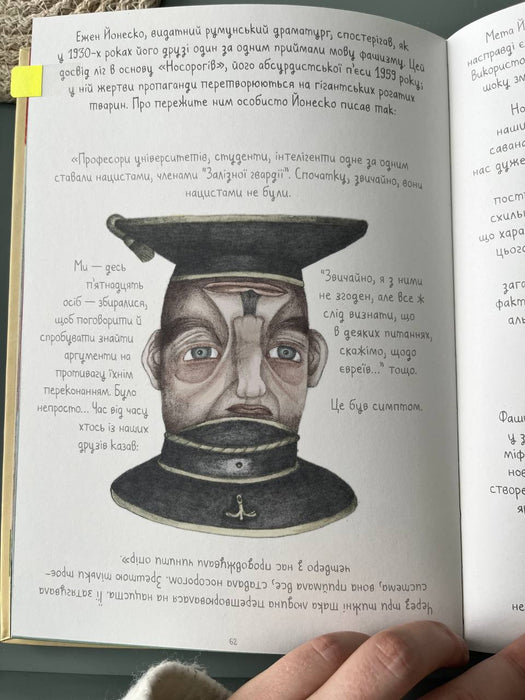 Ежен Йонеско, видатний румунський драматург, спостерігав, як
у 1930-х роках його друзі один за одним приймали мову фашизму. Цей
досвід ліг в основу «Носорогів», його абсурдистської п'єси 1959 року;
у ній жертви пропаганди перетворюються на гігантських рогатих
тварин. Про пережите ним особисто Йонеско писав так:
«Професори університетів, студенти, інтелігенти одне за одним
ставали нацистами, членами "Залізної гвардії". Спочатку, звичайно, вони
нацистами не були.
Ми — десь
п'ятнадцять
осіб — збиралися,
щоб поговорити й
спробувати знайти
аргументи на
противагу їхнім
переконанням. Було
непросто... Час від часу
хтось із наших
друзів казав:
"Звичайно, я з ними
не згоден, але все ж
слід визнати, що
в деяких питаннях,
скажімо, щодо
євреїв..." тощо.
Це був симптом.
Через три тижні така людина перетворювалася на нациста. Її затягувала
система, вона приймала все, ставала носорогом. Зрештою тільки троє-
четверо з нас продовжували чинити опір».
62
Мета Й
насправді є
Використо
шоку зм
Но
наши
савана
нас дуже
пост
схиль
що хара
цього
зага
факт
аль
Фаши
у з
міф
нов
створе
не